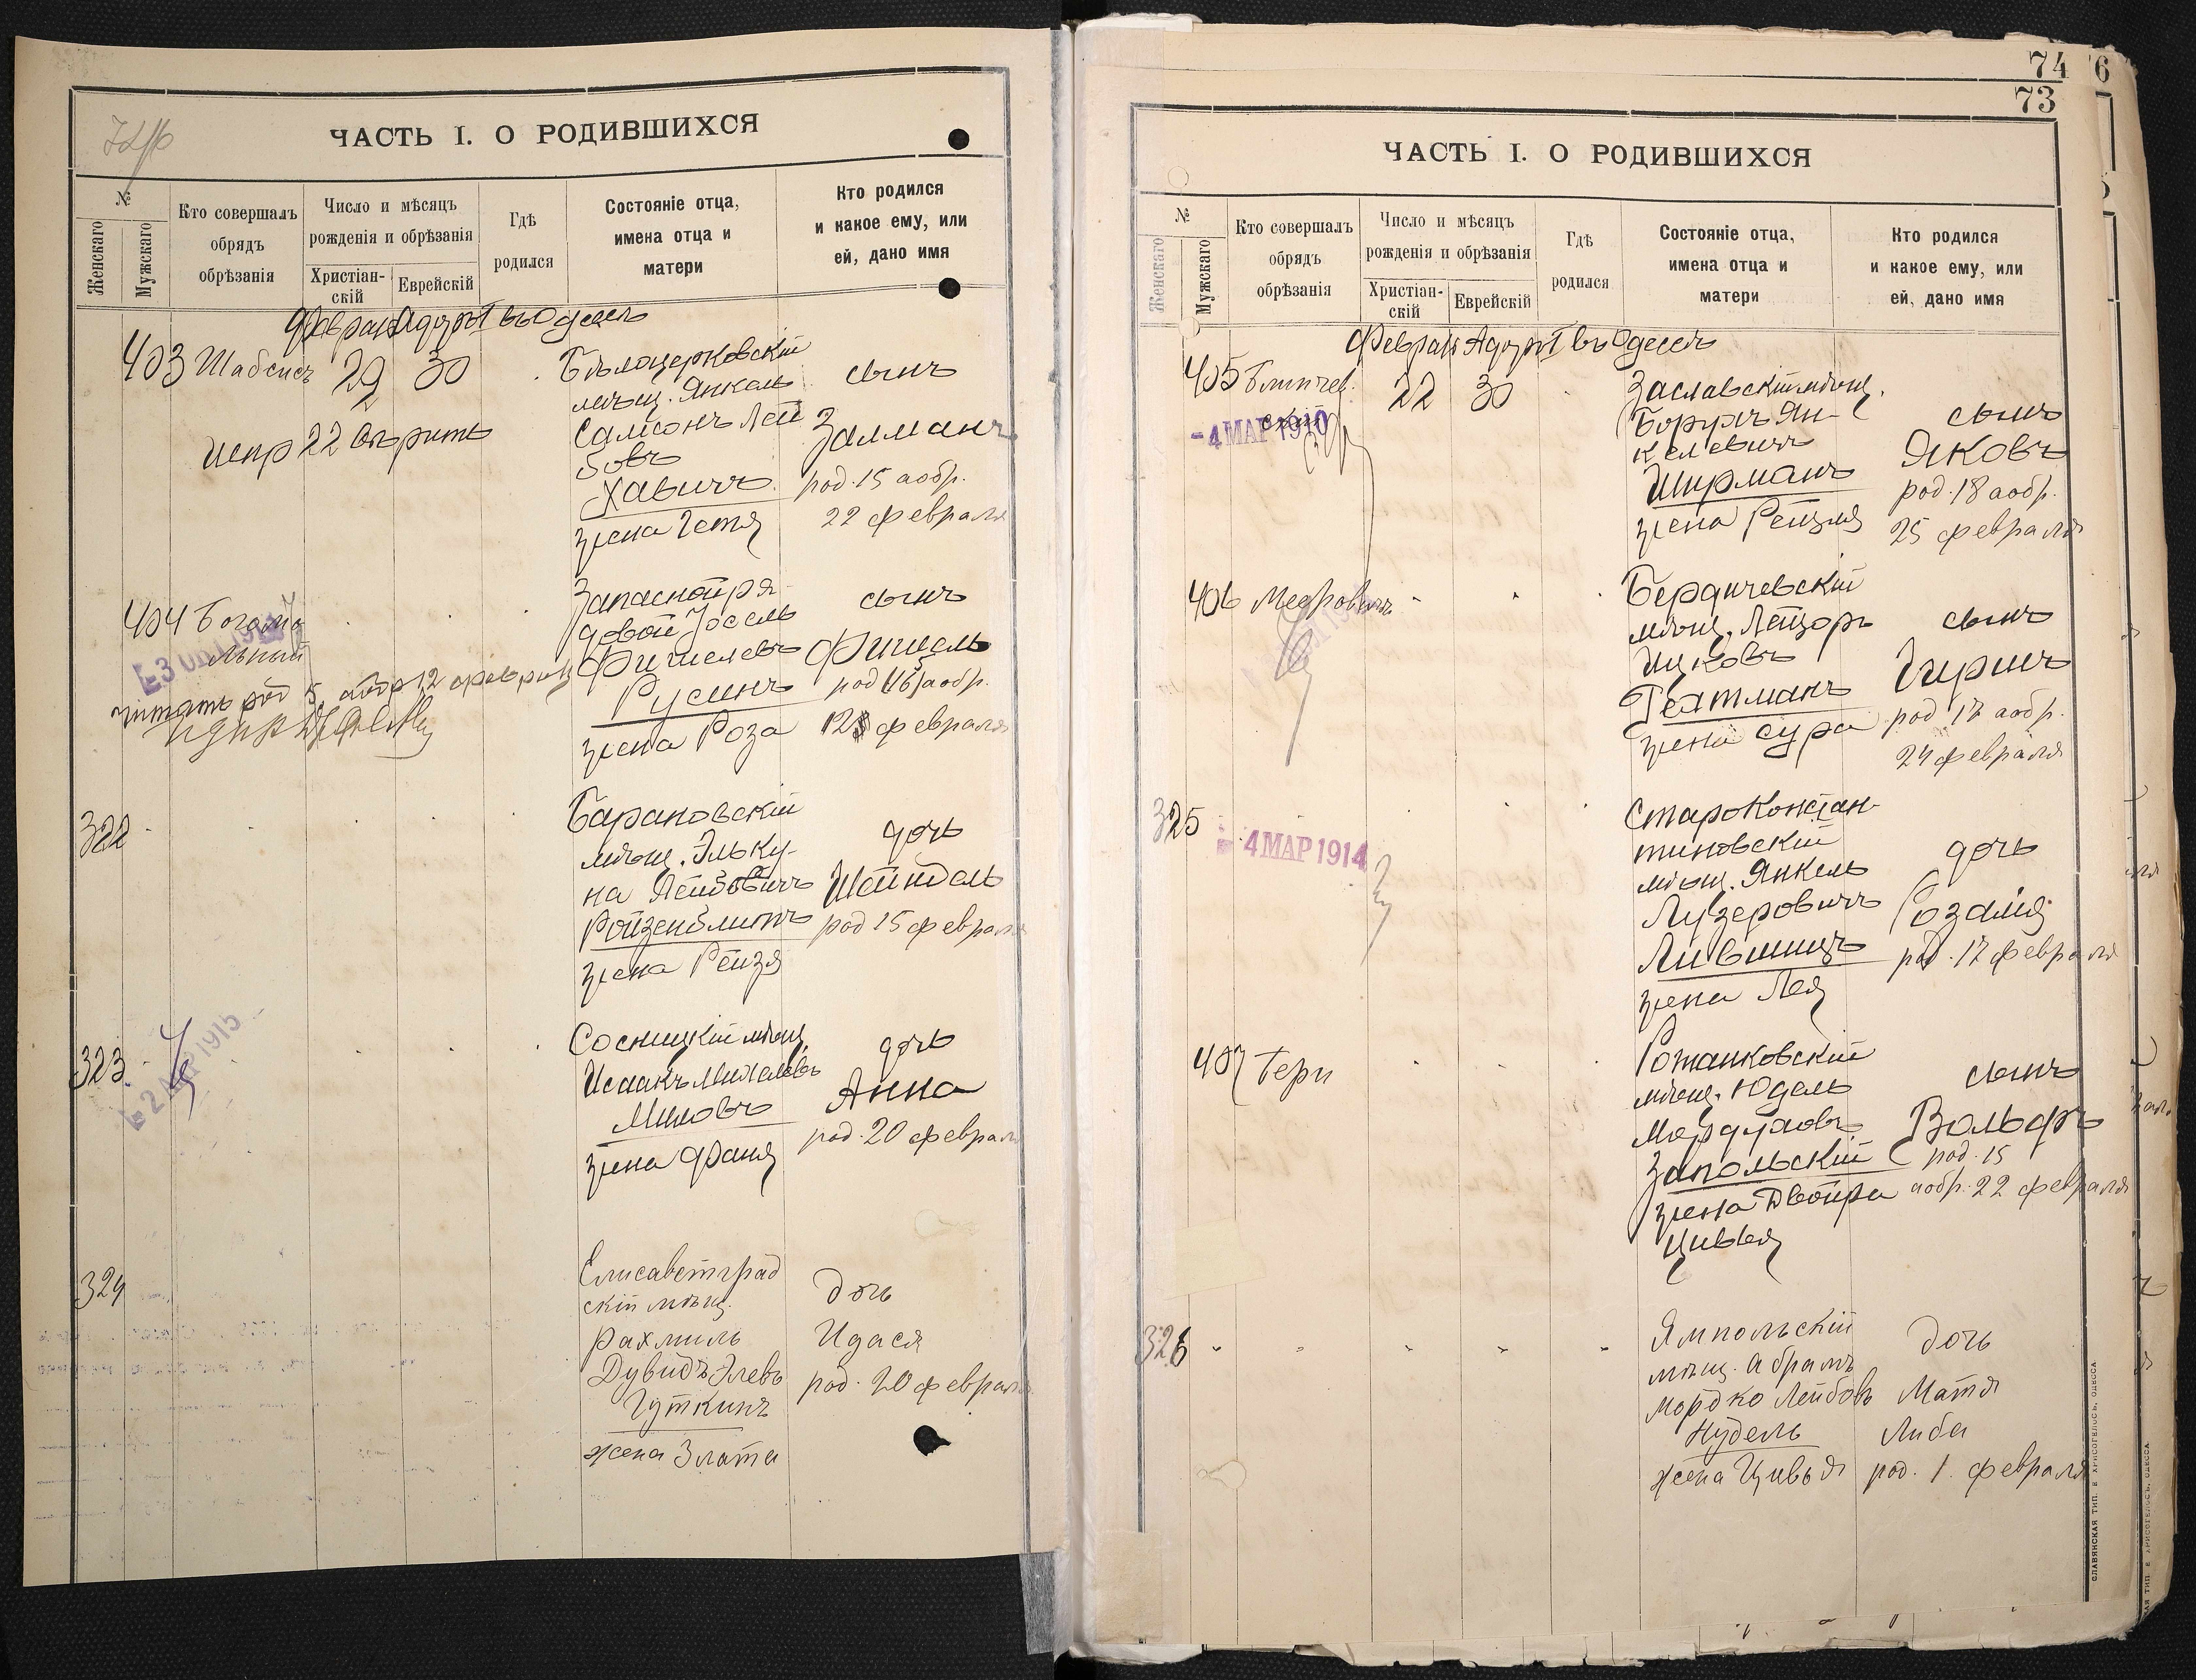 ЧАСТЬ I. О РОДИВШИХСЯ
№
Женскаго
Мужскаго
Кто совершалъ обрядъ обрѣзанія
Число и мѣсяцъ рожденія и обрѣзанія
Христіан-
скій
Еврейскій
Гдѣ родился
Состояніе отца, имена отца и матери
Кто родился и какое ему, или ей, дано имя
Феврал Адаръ I въ Одессѣ
403 Шабсисъ 29 30
Бѣлоцерковскій
мѣщ. Янкель
Самсонъ Лей
бовъ
Хавичъ
жена Гетя
сынъ
Залманъ
род. 15 а обр.
22 февраля
Испр 22
404 Богомо
льный
Запасной ря
довой Іосель
Фишелевъ
Русинъ
жена Роза
сынъ
Фишель
род а обр.
12 февраля
читать род 5 а обр 12 февраля
322
Барановскій
мѣщ. Эльку-
на Лейбовичъ
Ройзенблитъ
жена Рейзя
дочь
Шейндель
род 15 февраля
323
2 МАР 1915
Сосницкій мѣщ.
Исаакъ Михелевъ
Миловъ
жена Фаня
дочь
Анна
род. 20 февраля
324
Елисаветград
скій мѣщ.
Рахмиль
Дувидъ Элевъ
Гуткинъ
жена Злата
дочь
Идася
род. 20 февраля
74
73
6
ЧАСТЬ I. О РОДИВШИХСЯ
№
Женскаго
Мужскаго
Кто совершалъ обрядъ обрѣзанія
Число и мѣсяцъ рожденія и обрѣзанія
Христіан-
скій
Еврейскій
Гдѣ родился
Состояніе отца, имена отца и матери
Кто родился и какое ему, или ей, дано имя
Феврал Адаръ I въ Одессѣ
405 22 30
скій
-4 МАР 1910
Заславскій мѣщ.
Борухъ Ян-
келевичъ
Ширманъ
жена Рейзля
сынъ
Яковъ
род. 18 а обр.
25 февраля
406 Меерович
Бердичевскій
мѣщ. Лейзоръ
Ицковъ
Гехтманъ
жена Сура
сынъ
Гиршъ
род 17 а обр.
24 февраля
325
4 МАР 1914
Староконстан-
тиновскій
мѣщ. Янкель
Лузеровичъ
Лившицъ
жена Лея
дочь
Розалія
род. 17 февраля
407 Герш
Ротмистровскій
мѣщ. Юдель
Мордуховъ
Запольскій
жена Двойра
Цивья
сынъ
Вольфъ
род. 15
а обр. 22 февраля
326
Ямпольскій
мѣщ. Абрамъ
Мордко Лейбовъ
Нудель
жена Цивья
дочь
Матя
Либа
род. 1. февраля
СЛАВЯНСКАЯ ТИП. Е. ХРИСОГЕЛОСЪ, ОДЕССА